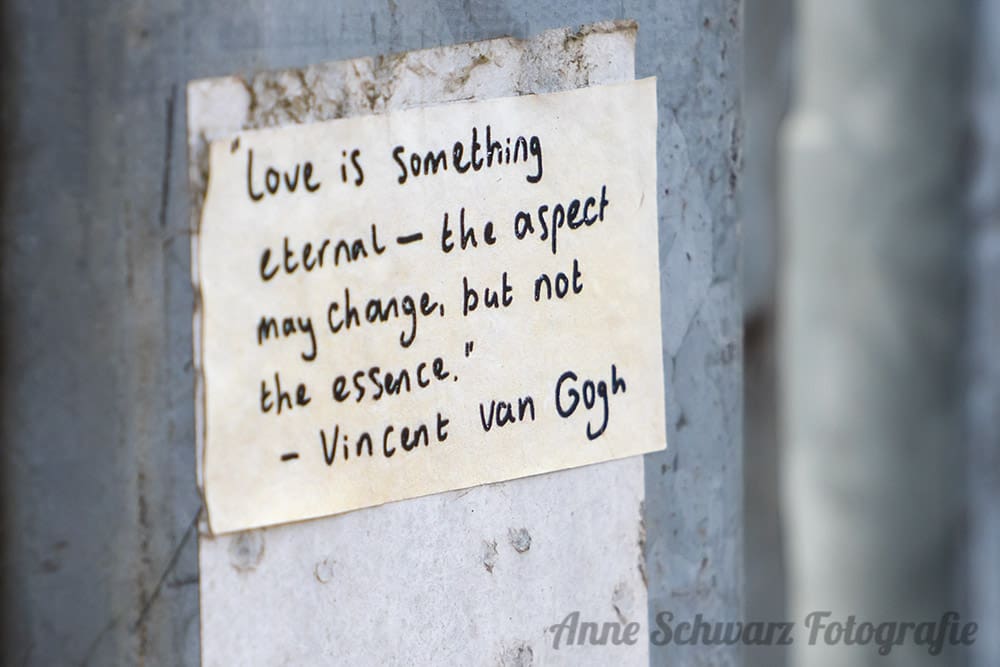 "Love is something
eternal – the aspect
may change, but not
the essence."
- Vincent van Gogh
Anne Schwarz Fotografie